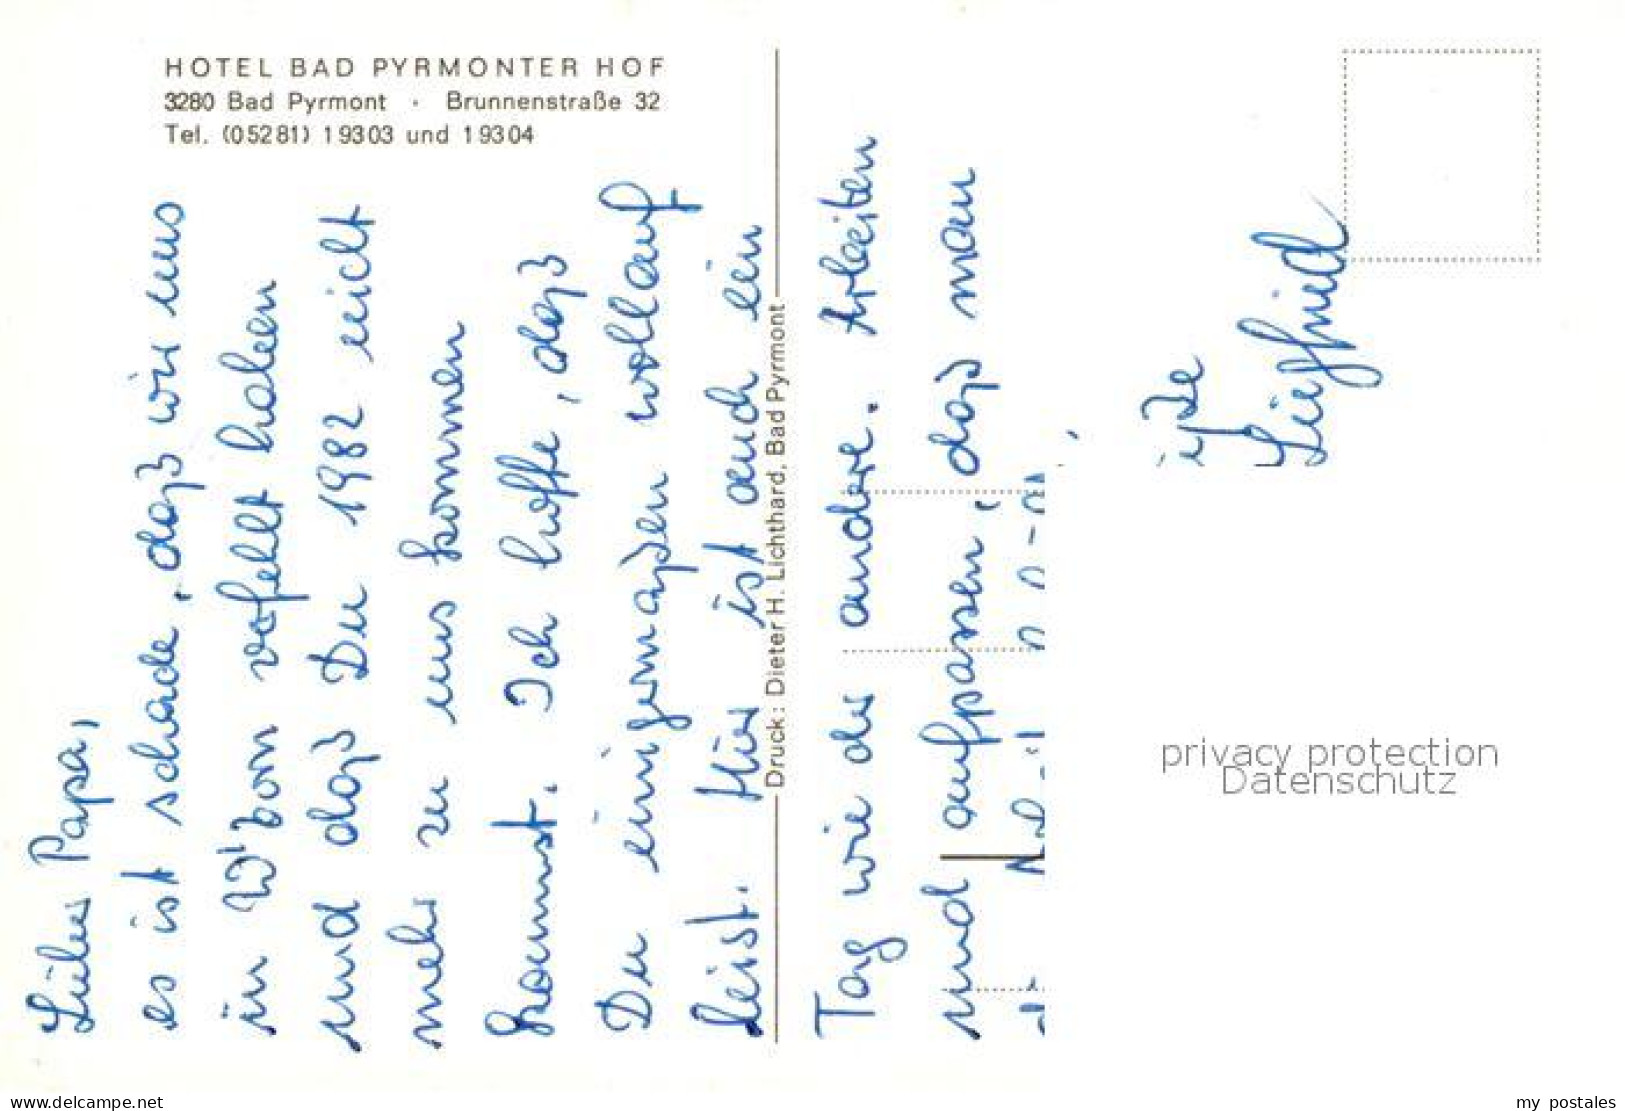 HOTEL BAD PYRMONTER HOF
3280 Bad Pyrmont · Brunnenstraße 32
Tel. (05281) 19303 und 19304
Lieber Papa,
es ist schade, daß wir uns
in W'born verfehlt haben
und daß Du 1982 nicht
mehr zu uns kommen
kannst. Ich hoffe, daß
Du einigermaßen wohlauf
bist. Hier ist auch ein
Druck: Dieter H. Lichthard, Bad Pyrmont
Tag wie der andere. Arbeiten
und aufpassen, daß man
Siegfried
privacy protection
Datenschutz
oldthing.com
my_postales